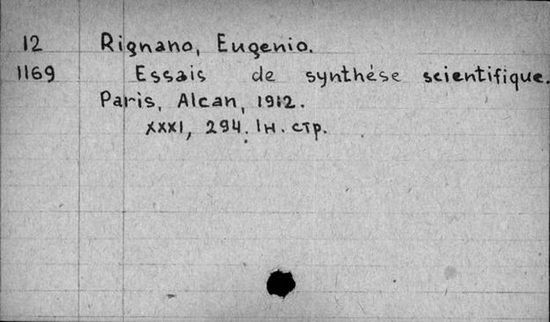 12 Rignano, Eugenio.
1169 Essais de synthése scientifique.
Paris, Alcan, 1912.
XXXI, 294. Iн. стр.